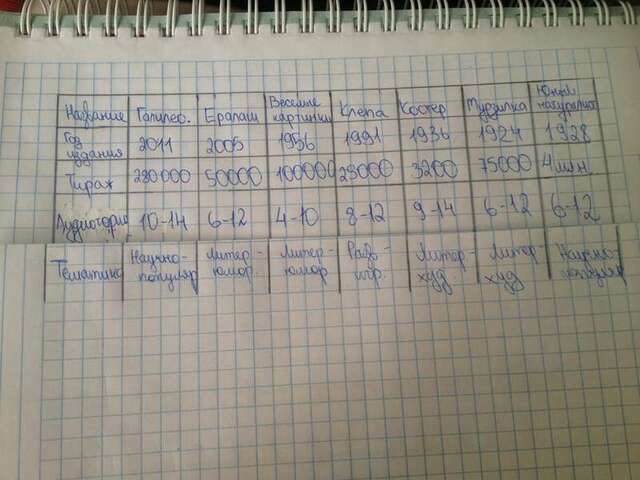 Название Галилео. Ералаш Веселые картинки Клепа Костер Мурзилка Юный натуралист
Год издания 2011 2005 1956 1991 1936 1924 1928
Тираж 280000 50000 100000 25000 3200 75000 4 млн.
Аудиотория 10-14 6-12 4-10 8-12 9-14 6-12 6-12
Тематика Научно-популяр Литер-юмор. Литер-юмор Разв-игр. Литер-худ. Литер-худ Научно-популяр